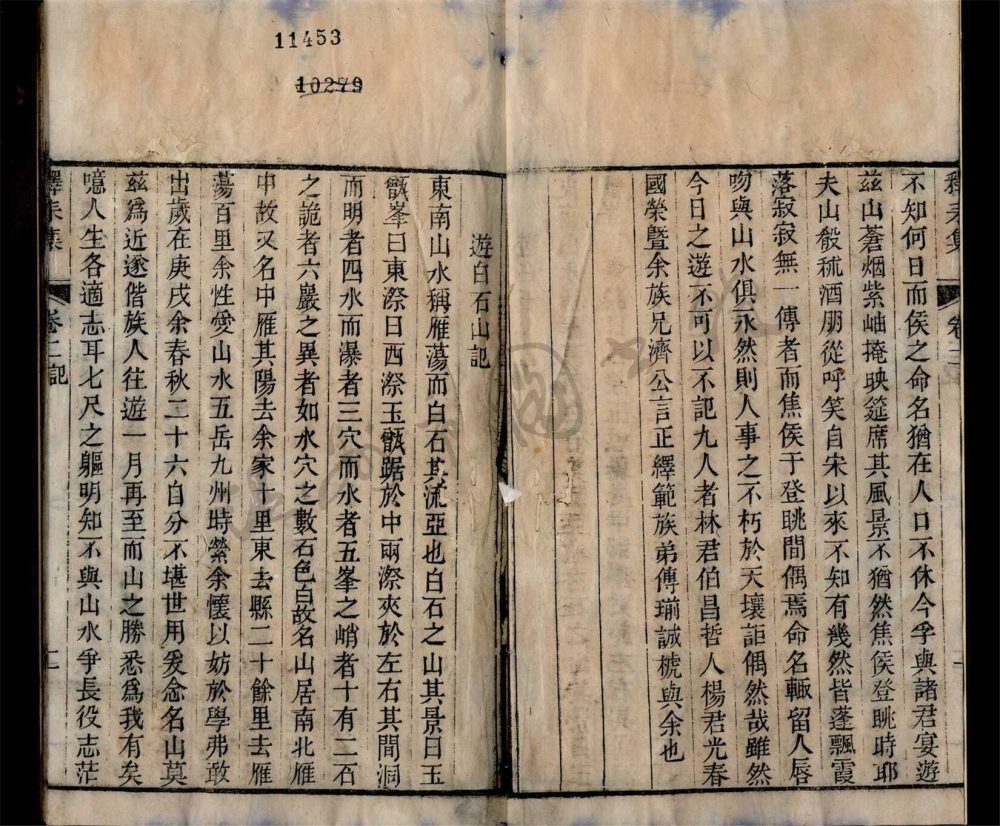 11453
10279
不知何日而侯之命名猶在人口不休今孚與諸君宴遊
茲山蒼烟紫岫掩映筵席其風景不猶然焦侯登眺時耶
夫山殽秫酒朋從呼笑自宋以來不知有幾然皆蓬飄霞
落寂寂無一傳者而焦侯于登眺間偶焉命名輙留人唇
吻與山水俱永然則人事之不朽於天壤詎偶然哉雖然
今日之遊不可以不記九人者林君伯昌哲人楊君光春
國榮暨余族兄濟公言正繹範族弟傳瑚誠楒與余也
卷二
一
遊白石山記
東南山水稱雁蕩而白石其流亞也白石之山其景曰玉
甑峯曰東漈曰西漈玉甑踞於中兩漈夾於左右其間洞
而明者四水而瀑者三穴而水者五峯之峭者十有二石
之詭者六巖之異者如水穴之數石色白故名山居南北雁
中故又名中雁其陽去余家十里東去縣二十餘里去雁
蕩百里余性愛山水五岳九州時縈余懷以妨於學弗敢
出歲在庚戌余春秋二十六自分不堪世用爰念名山莫
茲爲近遂偕族人往遊一月再至而山之勝悉爲我有矣
噫人生各適志耳七尺之軀明知不與山水爭長役志茫
釋耒集
卷二記
二